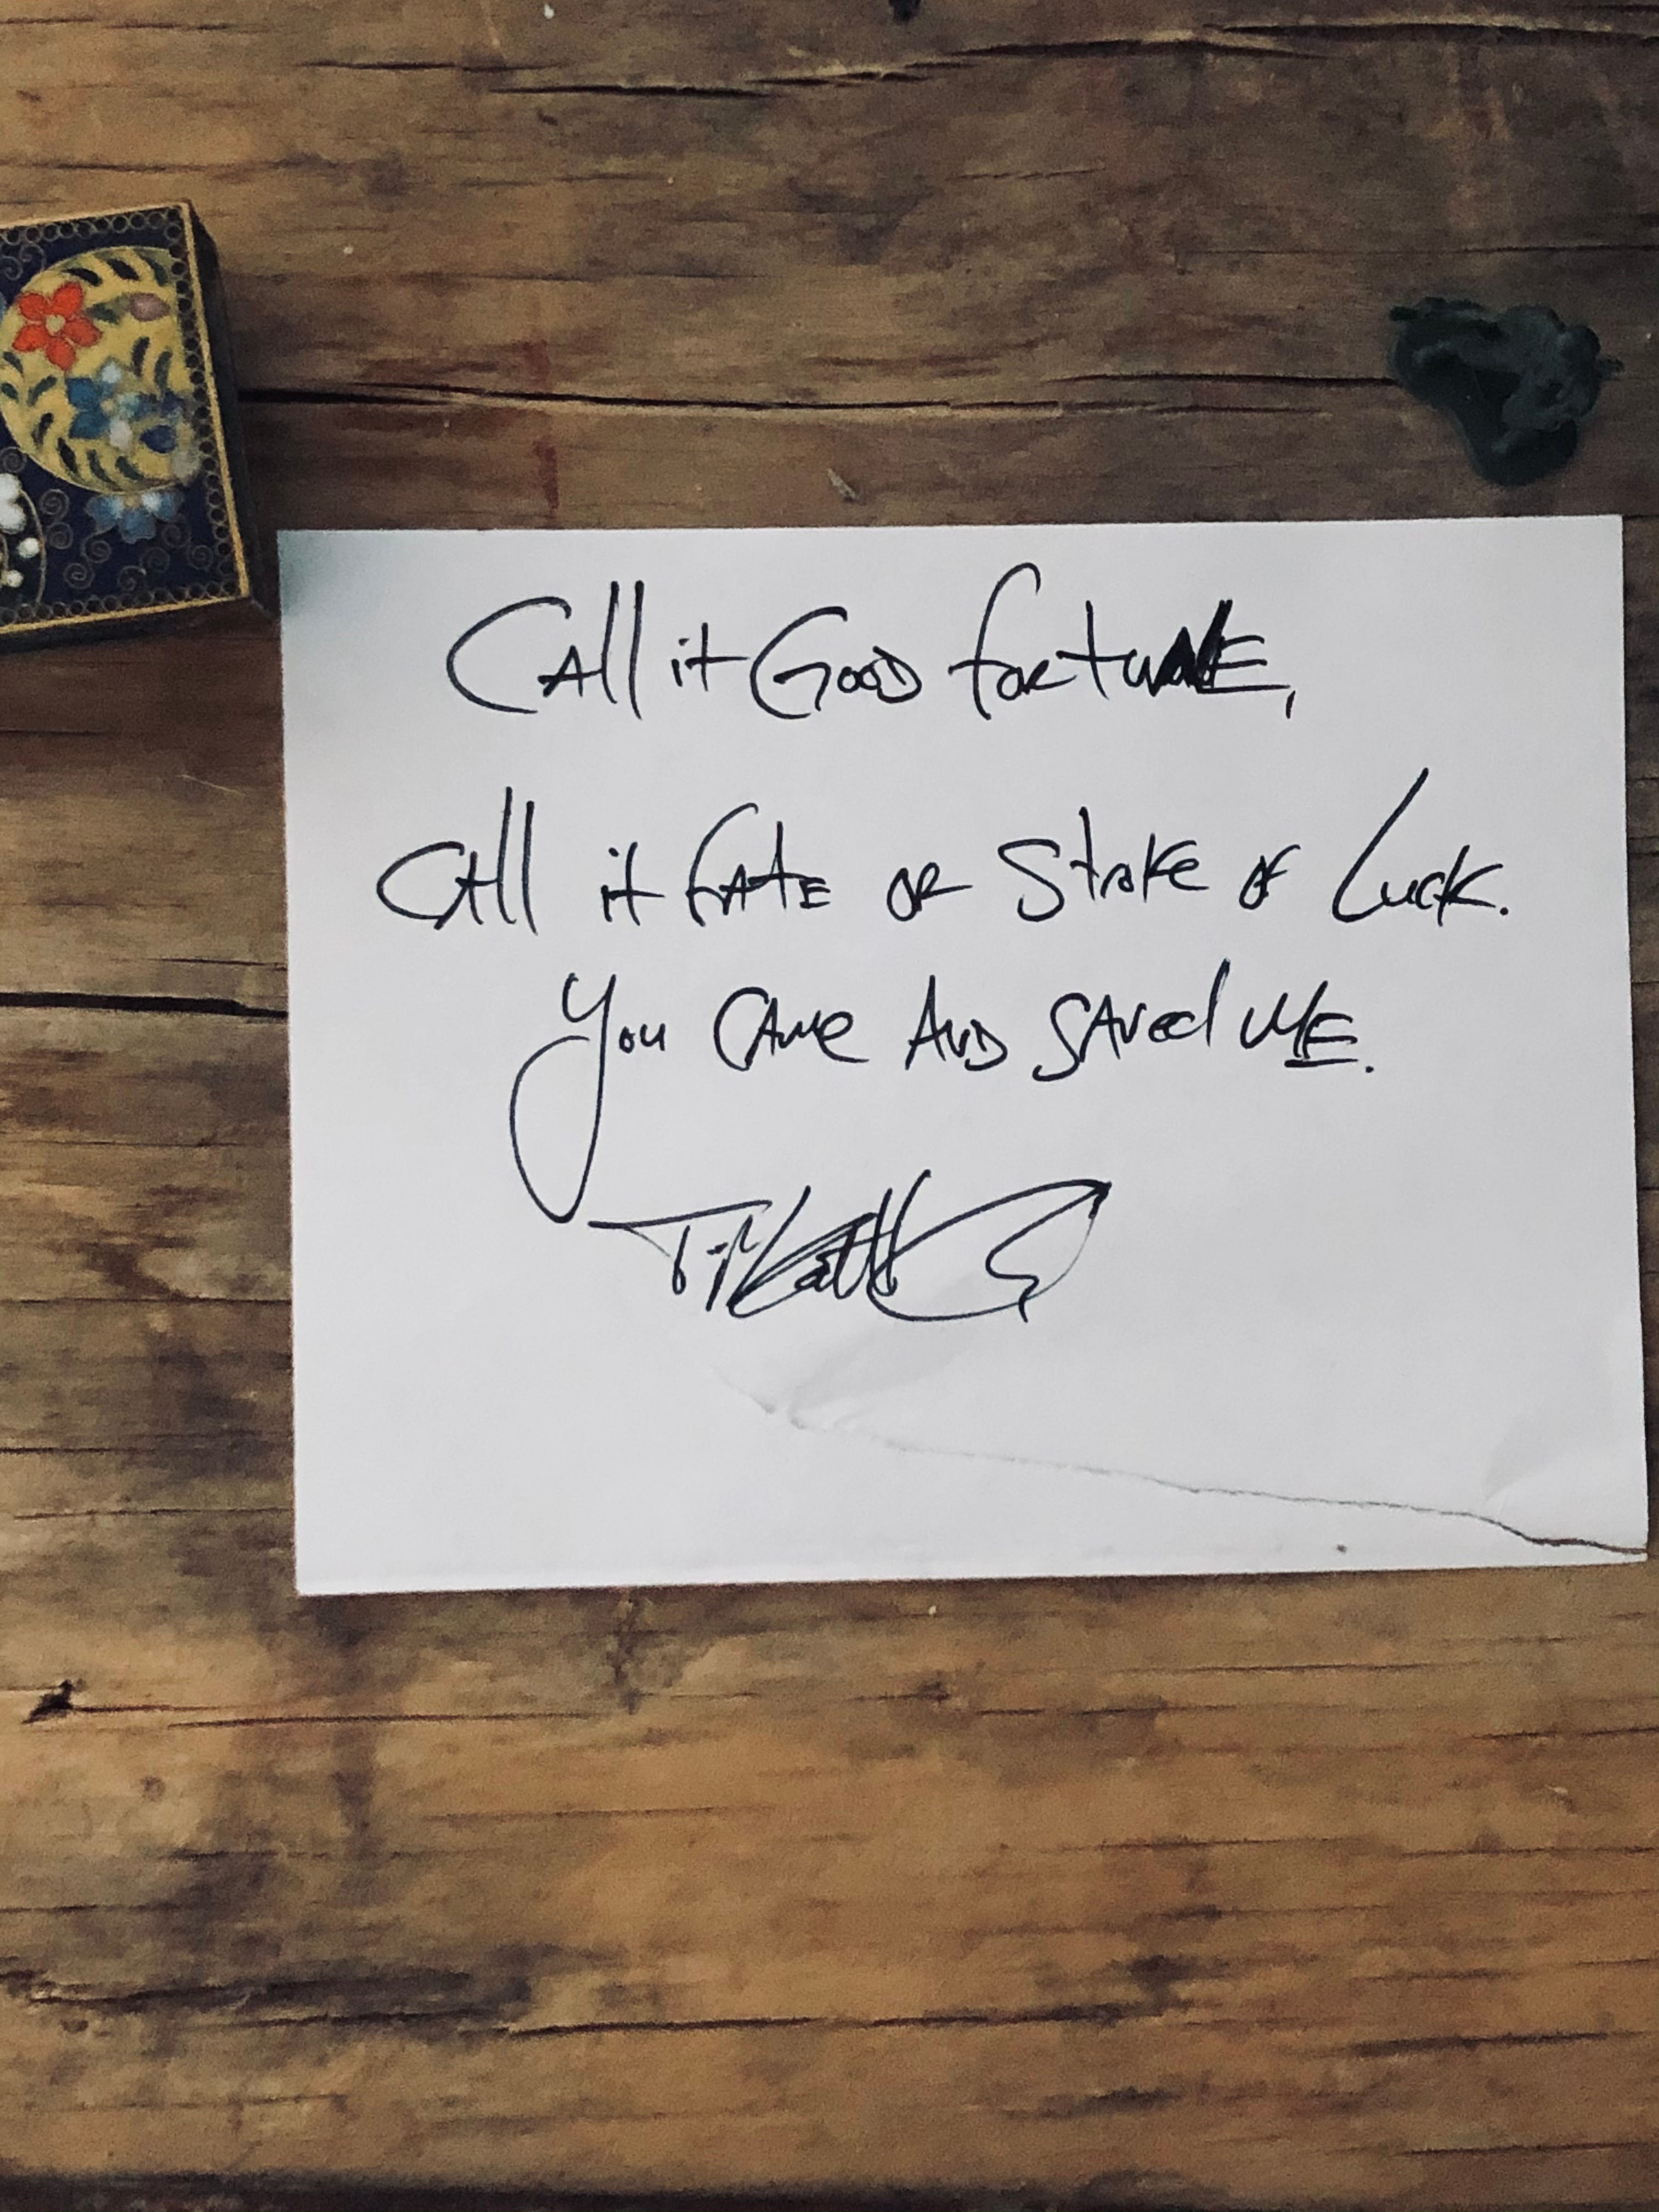 Call it Good fortuNE,
Call it fate or Stroke of Luck.
You Came AND SAved ME.